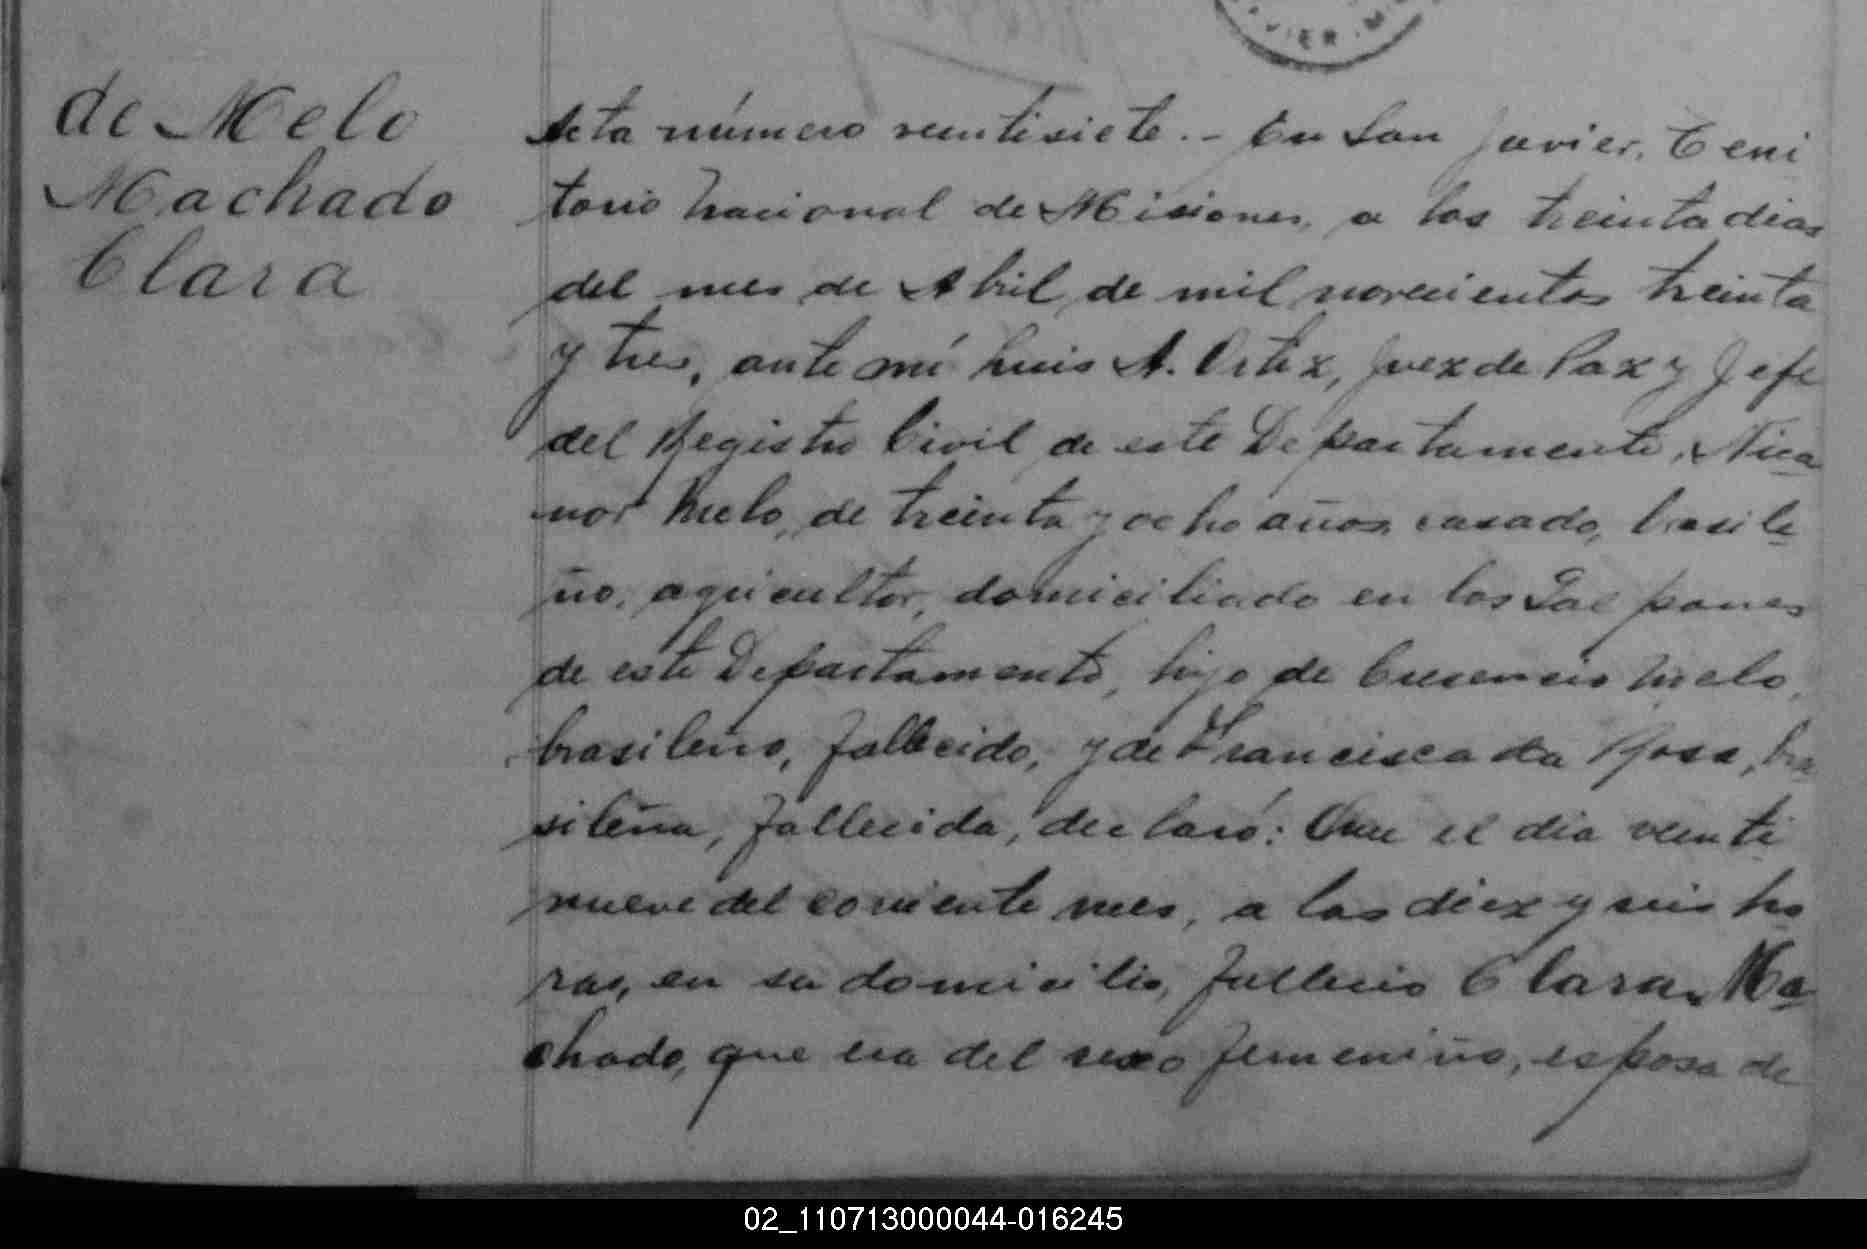 VIER. M
de Melo
Machado
Clara
Acta número veintisiete.- En San Javier, Terri
torio Nacional de Misiones, a los treinta dias
del mes de Abril de mil novecientos treinta
y tres, ante mí Luis A. Ortiz, Juez de Paz y Jefe
del Registro Civil de este Departamento, Nica
nor Melo, de treinta y ocho años, casado, brasile
ño, agricultor, domiciliado en los Galpones
de este Departamento, hijo de Cresencio Melo,
brasileño, fallecido, y de Francisca da Rosa, bra
sileña, fallecida, declaró: Que el dia veinti
nueve del corriente mes, a las diez y seis ho
ras, en su domicilio, fallecio Clara Ma
chado, que era del sexo femenino, esposa de
02_110713000044-016245